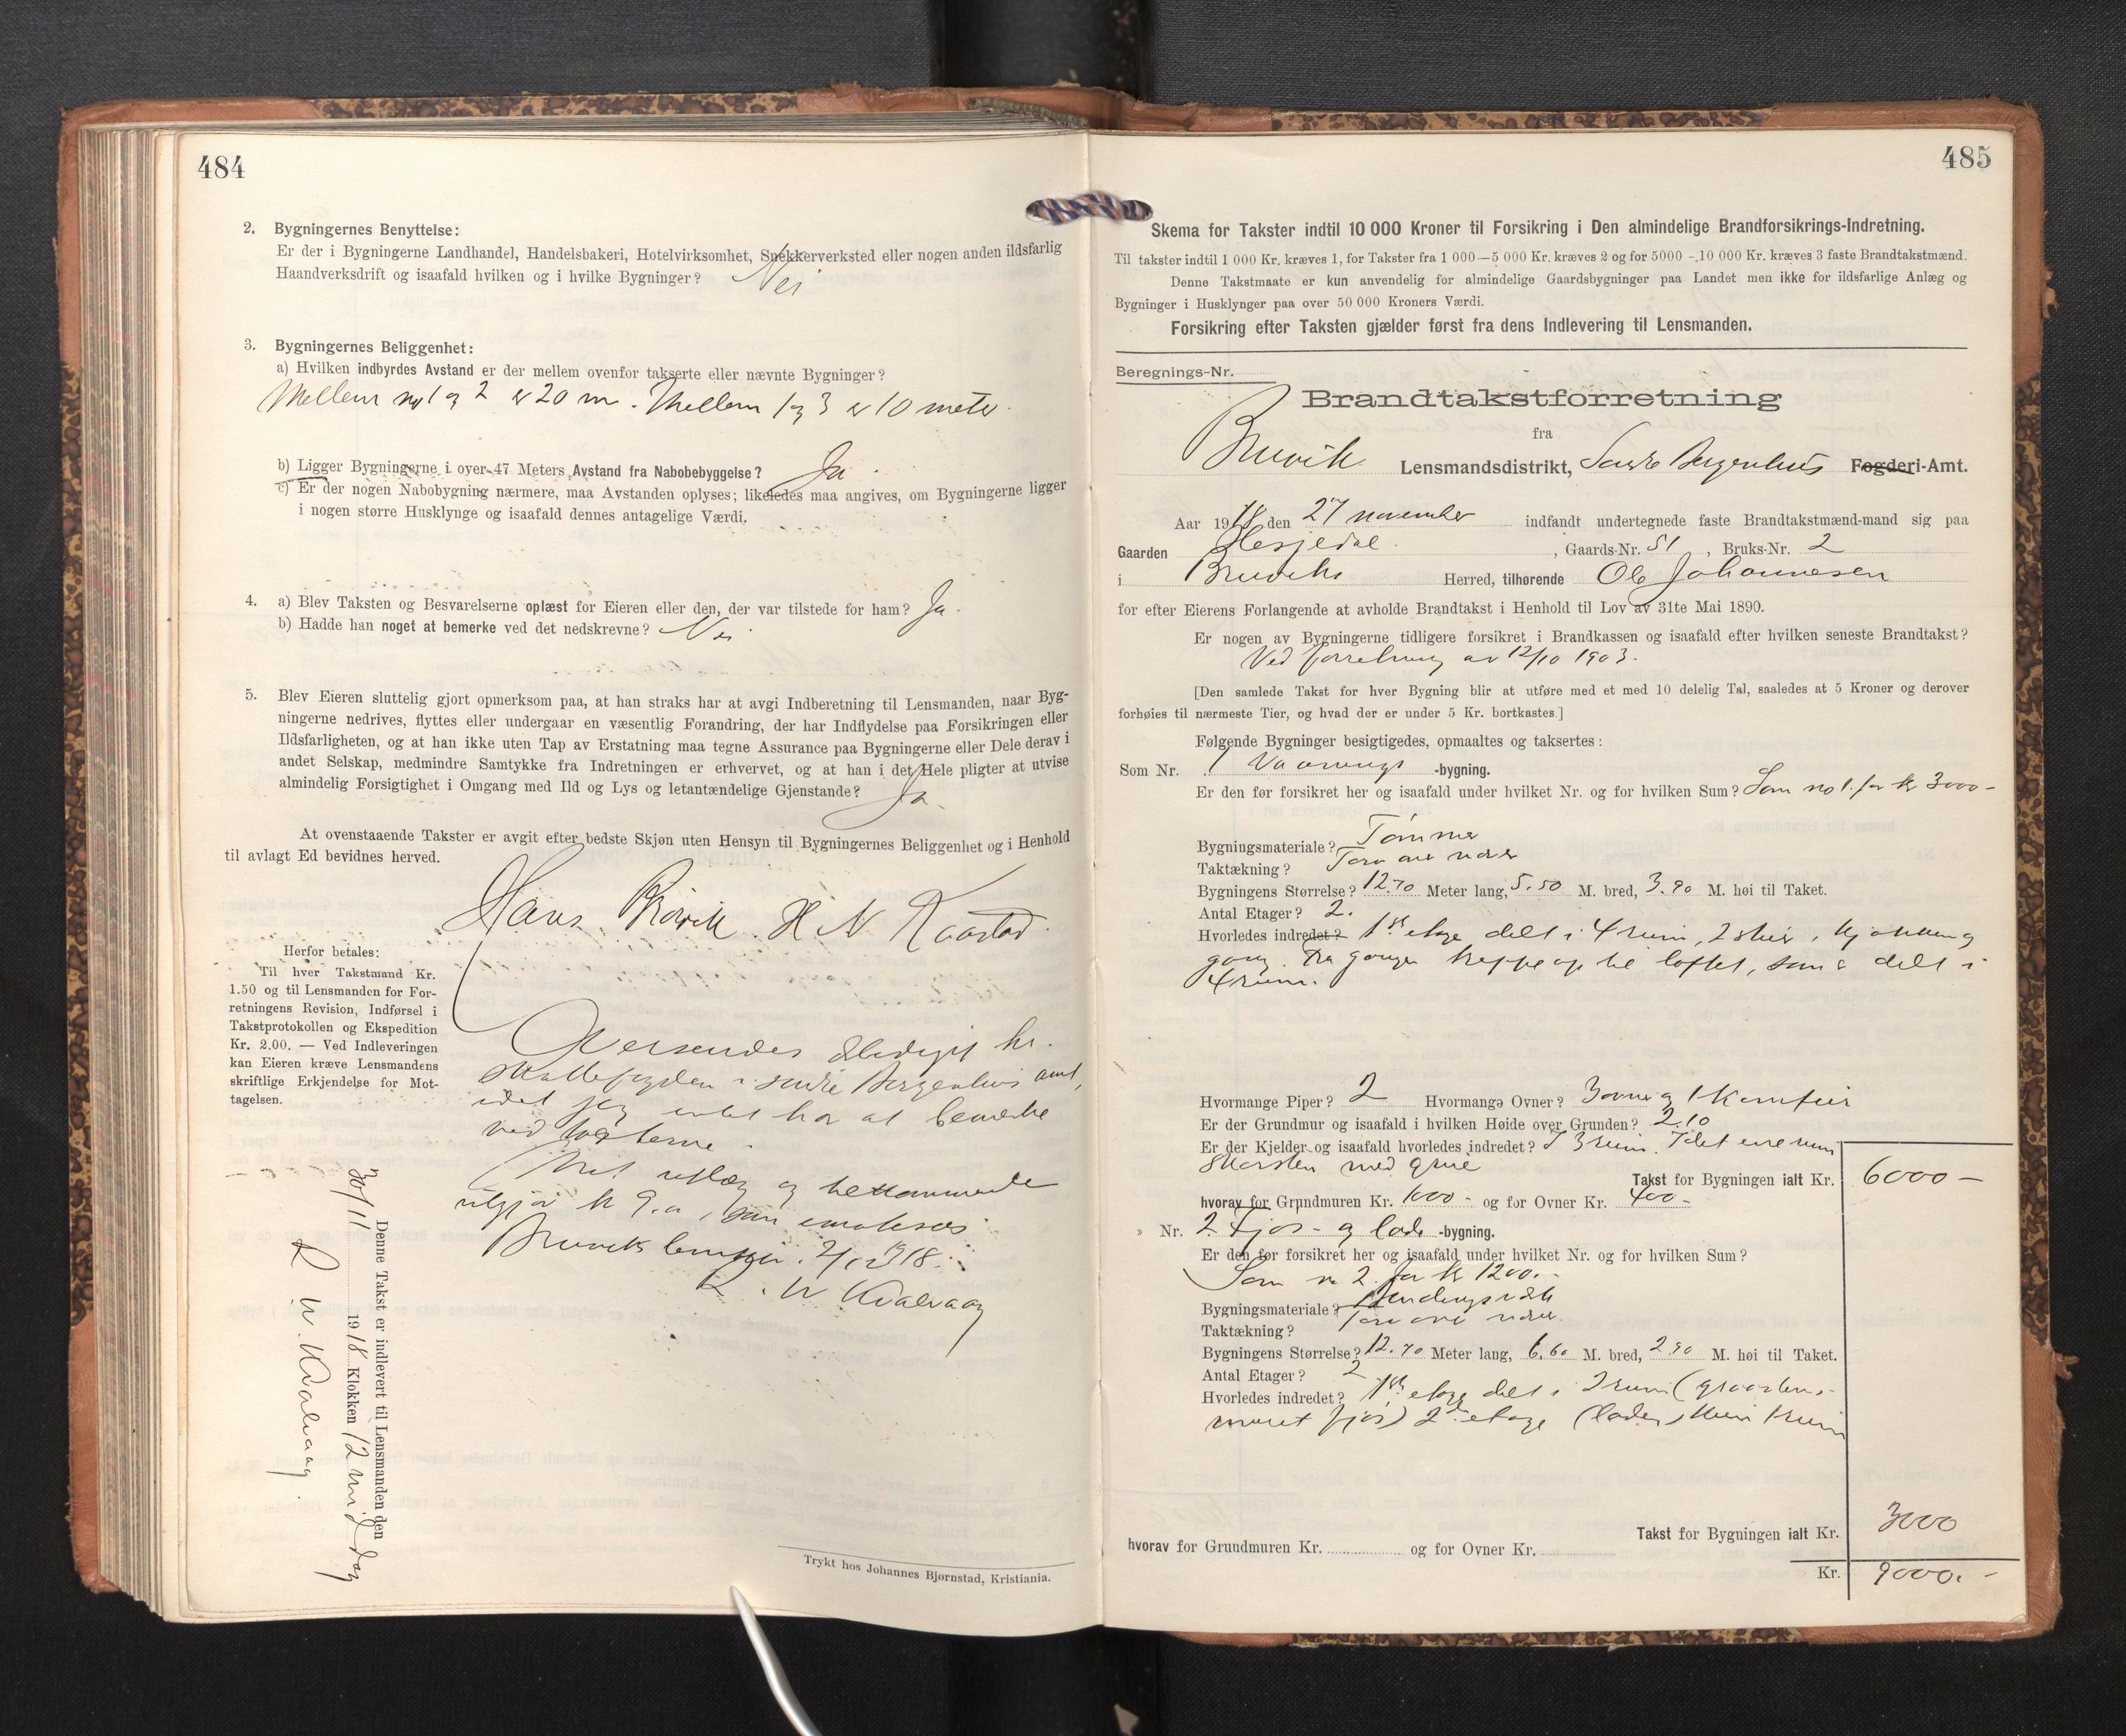 484
2. Bygningernes Benyttelse:
Er der i Bygningerne Landhandel, Handelsbakeri, Hotelvirksomhet, Snekkerverksted eller nogen anden ildsfarlig
Haandverksdrift og isaafald hvilken og i hvilke Bygninger? Nei
3. Bygningernes Beliggenhet:
a) Hvilken indbyrdes Avstand er der mellem ovenfor takserte eller nævnte Bygninger?
Mellem no 1 og 2 er 20 m. Mellem 1 og 3 er 10 meter.
b) Ligger Bygningerne i over 47 Meters Avstand fra Nabobebyggelse? Ja.
c) Er der nogen Nabobygning nærmere, maa Avstanden oplyses; likeledes maa angives, om Bygningerne ligger
i nogen større Husklynge og isaafald dennes antagelige Værdi.
4. a) Blev Taksten og Besvarelserne oplæst for Eieren eller den, der var tilstede for ham? Ja.
b) Hadde han noget at bemerke ved det nedskrevne? Nei
5. Blev Eieren sluttelig gjort opmerksom paa, at han straks har at avgi Indberetning til Lensmanden, naar Byg-
ningerne nedrives, flyttes eller undergaar en væsentlig Forandring, der har Indflydelse paa Forsikringen eller
Ildsfarligheten, og at han ikke uten Tap av Erstatning maa tegne Assurance paa Bygningerne eller Dele derav i
andet Selskap, medmindre Samtykke fra Indretningen er erhvervet, og at han i det Hele pligter at utvise
almindelig Forsigtighet i Omgang med Ild og Lys og letantændelige Gjenstande? Ja.
At ovenstaaende Takster er avgit efter bedste Skjøn uten Hensyn til Bygningernes Beliggenhet og i Henhold
til avlagt Ed bevidnes herved.
Hans H N
Herfor betales:
Til hver Takstmand Kr.
1.50 og til Lensmanden for For-
retningens Revision, Indførsel i
Takstprotokollen og Ekspedition
Kr. 2.00. — Ved Indleveringen
kan Eieren kræve Lensmandens
skriftlige Erkjendelse for Mot-
tagelsen.
Oversendes hr.
Skattefogden i søndre Bergenhus amt,
idet jeg intet har at bemerke
ved taksterne.
Mit utlæg og tilkommende
utgjør kr 9.0, som
Bruvik 2/12 1918.
L. W Kvalvaag
Denne Takst er indlevert til Lensmanden den
30/11 1918 Klokken 12 middag
L W. Kvalvaag
Trykt hos Johannes Bjørnstad, Kristiania.
485
Skema for Takster indtil 10 000 Kroner til Forsikring i Den almindelige Brandforsikrings-Indretning.
Til takster indtil 1 000 Kr. kræves 1, for Takster fra 1 000—5 000 Kr. kræves 2 og for 5000 -10 000 Kr. kræves 3 faste Brandtakstmænd.
Denne Takstmaate er kun anvendelig for almindelige Gaardsbygninger paa Landet men ikke for ildsfarlige Anlæg og
Bygninger i Husklynger paa over 50 000 Kroners Værdi.
Forsikring efter Taksten gjælder først fra dens Indlevering til Lensmanden.
Beregnings-Nr.
Brandtakstforretning
fra
Bruvik Lensmandsdistrikt, Søndre Bergenhus Fogderi-Amt.
Aar 1918 den 27 november indfandt undertegnede faste Brandtakstmænd-mand sig paa
Gaarden Hesjedal, Gaards-Nr. 51, Bruks-Nr. 2
i Bruviks Herred, tilhørende Ole Johannesen
for efter Eierens Forlangende at avholde Brandtakst i Henhold til Lov av 31te Mai 1890.
Er nogen av Bygningerne tidligere forsikret i Brandkassen og isaafald efter hvilken seneste Brandtakst?
Ved forretning av 12/10 1903.
[Den samlede Takst for hver Bygning blir at utføre med et med 10 delelig Tal, saaledes at 5 Kroner og derover
forhøies til nærmeste Tier, og hvad der er under 5 Kr. bortkastes.]
Følgende Bygninger besigtigedes, opmaaltes og taksertes:
Som Nr. 1 Vaanings -bygning.
Er den før forsikret her og isaafald under hvilket Nr. og for hvilken Sum? Som no 1. for kr 3000-
Bygningsmateriale? Tømmer
Taktækning? Torv over næver
Bygningens Størrelse? 12.70 Meter lang, 5.50 M. bred, 3.90 M. høi til Taket.
Antal Etager? 2.
Hvorledes indredet? 1ste etage delt i 4 rum, 2 stuer, kjøkken og
gang. Fra gangen trappe op til loftet, som er delt i
4 rum.
Hvormange Piper? 2 Hvormange Ovner? 3 ovner og 1 komfur
Er der Grundmur og isaafald i hvilken Høide over Grunden? 2.10
Er der Kjelder og isaafald hvorledes indredet? I 3 rum. I det ene rum
Skorsten med grue
Takst for Bygningen ialt Kr. 6000 -
hvorav for Grundmuren Kr. 1000 - og for Ovner Kr. 400 -
» Nr. 2. Fjøs- og lade -bygning.
Er den før forsikret her og isaafald under hvilket Nr. og for hvilken Sum?
Som no 2 for kr 1200.-
Bygningsmateriale?
Taktækning? Torv over næver.
Bygningens Størrelse? 12.70 Meter lang, 6.60 M. bred, 2.90 M. høi til Taket.
Antal Etager? 2
Hvorledes indredet? 1ste etage delt i 2 rum (graastens-
muret fjøs) 2den etage (laden) 1 rum
Takst for Bygningen ialt Kr. 3000
hvorav for Grundmuren Kr. og for Ovner Kr.
Kr. 9000.-